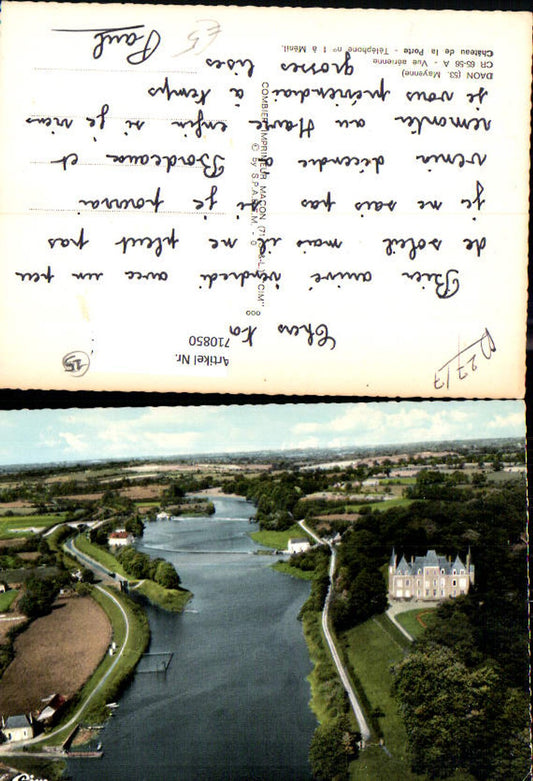 DAON (53. Mayenne)
CR 65-56 A - Vue aérienne
Château de la Porte - Téléphone n° 1 à Ménil.
le 27/7
Chers
Bien arrivé vendredi avec un peu
de soleil mais il ne pleut pas
je ne sais pas si je pourrai
venir décendre à Bordeaux et
remonter au Havre enfin si je viens
je vous préviendrai à temps
grosses bises
Paul
COMBIER IMPRIMEUR MACON "CIM"
© by S.P.A.D.E.M.
Artikel Nr.
710850
25
Cim